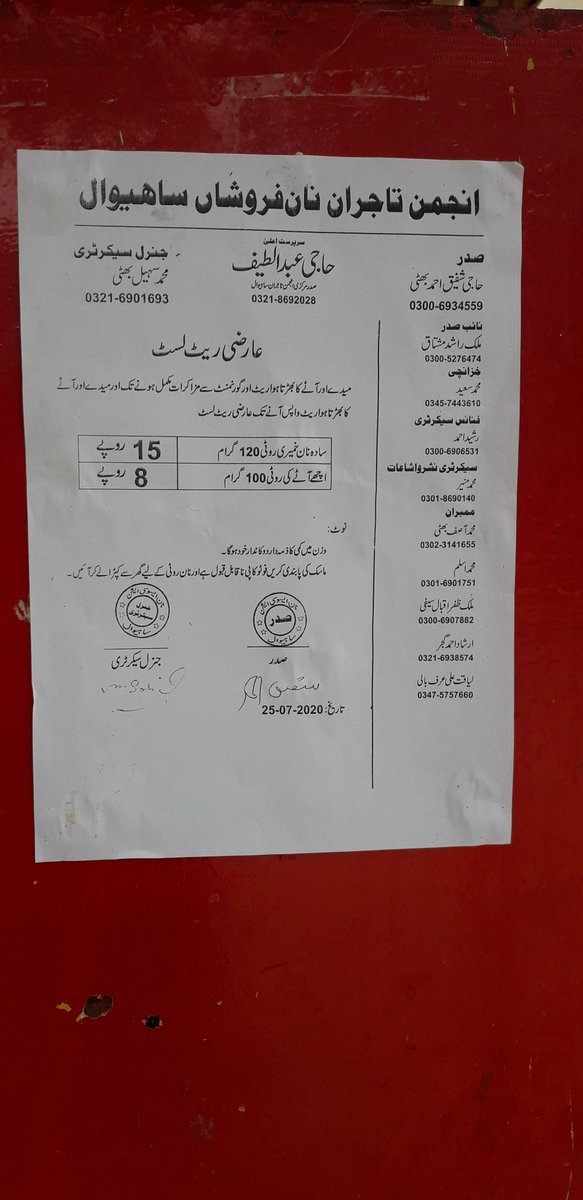 انجمن تاجران نان فروشاں ساھیوال
صدر
حاجی شفیق احمد بھٹی
0300-6934559
سرپرست اعلیٰ
حاجی عبدالطیف
صدر مرکزی انجمن تاجران ساہیوال
0321-8692028
جنرل سیکرٹری
محمد سہیل بھٹی
0321-6901693
نائب صدر
ملک راشد مشتاق
0300-5276474
خزانچی
محمد سعید
0345-7443610
فنانس سیکرٹری
رشید احمد
0300-6906531
سیکرٹری نشرواشاعات
محمد منیر
0301-8690140
ممبران
محمد آصف بھٹی
0302-3141655
محمد اسلم
0301-6901751
ملک ظفر اقبال سیفی
0300-6907882
ارشاد احمد گجر
0321-6938574
لیاقت علی عرف بالی
0347-5757660
عارضی ریٹ لسٹ
میدے اور آٹے کا بھڑتا ہوا ریٹ اور گورنمنٹ سے مزاکرات مکمل ہونے تک اور میدے اور آٹے
کا بھڑتا ہوا ریٹ واپس آنے تک عارضی ریٹ لسٹ
سادہ نان خمیری روٹی 120 گرام 15 روپے
اچھے آٹے کی روٹی 100 گرام 8 روپے
نوٹ:
وزن میں کمی کا ذمہ دار دوکاندار خود ہوگا۔
ماسک کی پابندی کریں فوٹو کاپی نا قابل قبول ہے اور نان روٹی کے لیے گھر سے کپڑا لے کر آئیں۔
نان ایسوسی ایشن
صدر
ساہیوال
نان ایسوسی ایشن
جنرل سیکرٹری
ساہیوال
صدر
جنرل سیکرٹری
تاریخ: 25-07-2020